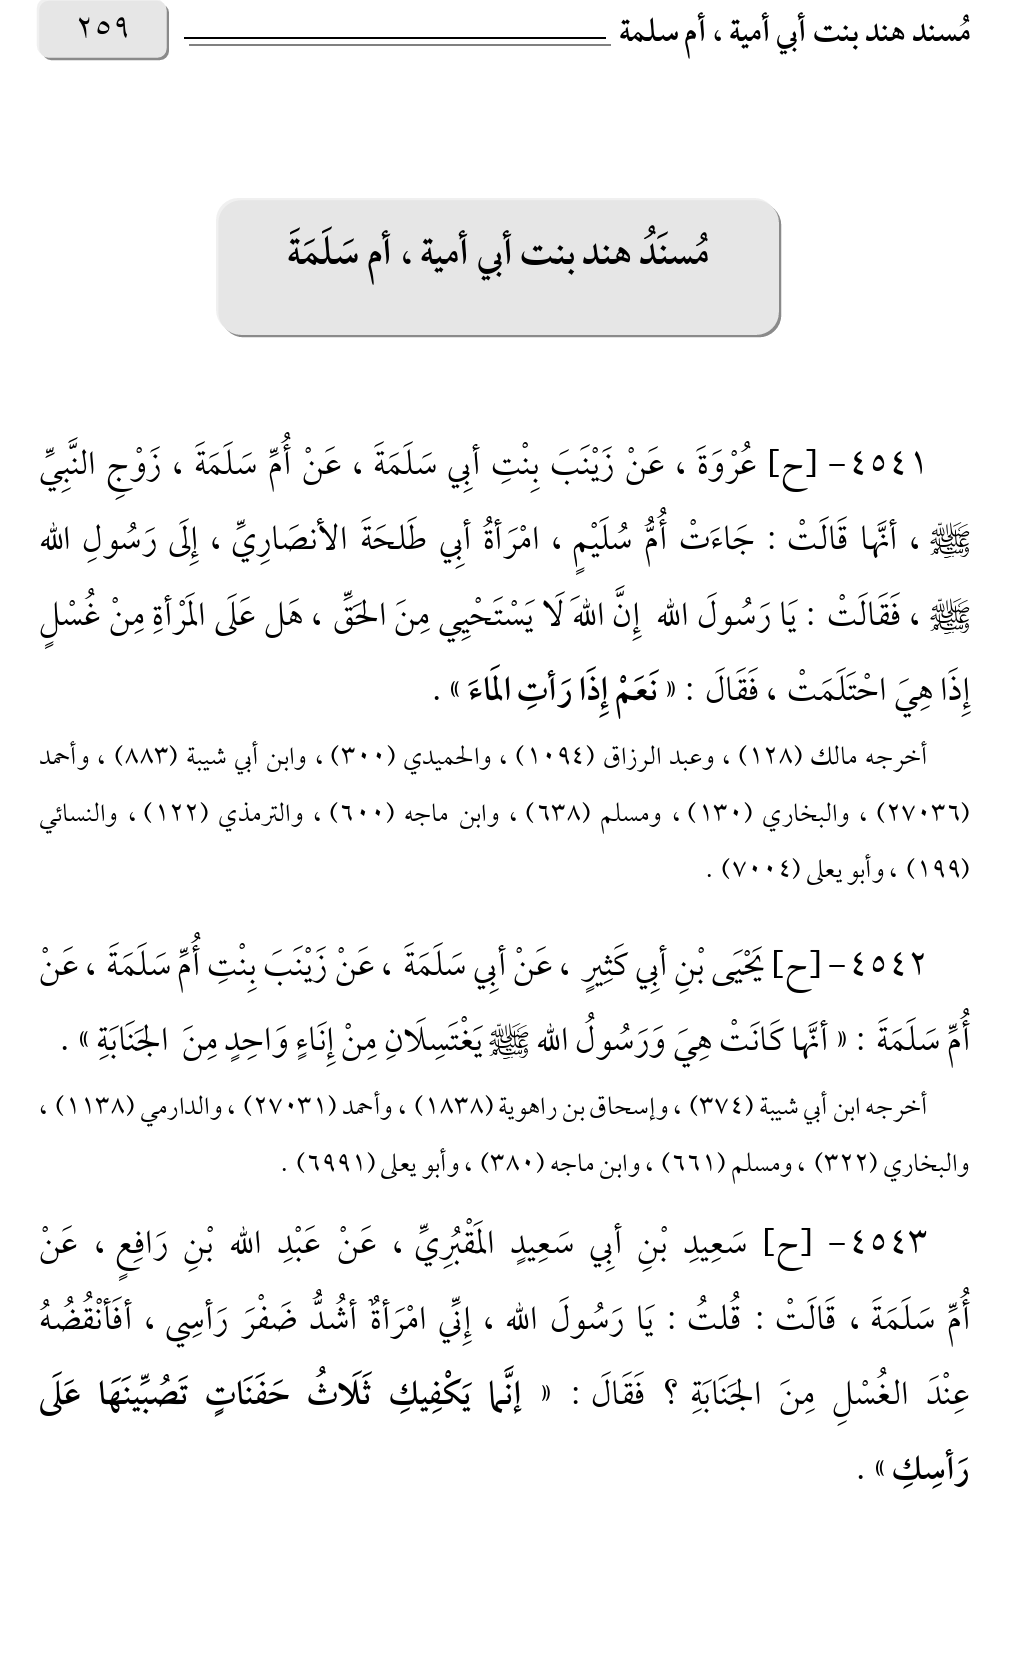 مُسند هند بنت أبي أمية ، أم سلمة
٢٥٩
مُسنَدُ هند بنت أبي أمية ، أم سَلَمَةَ
٤٥٤١- [ح] عُرْوَةَ ، عَنْ زَيْنَبَ بِنْتِ أبِي سَلَمَةَ ، عَنْ أُمِّ سَلَمَةَ ، زَوْجِ النَّبِيِّ
ﷺ ، أنَّها قَالَتْ : جَاءَتْ أُمُّ سُلَيْمٍ ، امْرَأةُ أبِي طَلحَةَ الأنصَارِيِّ ، إِلَى رَسُولِ الله
ﷺ ، فَقَالَتْ : يَا رَسُولَ الله إِنَّ اللهَ لَا يَسْتَحْيِي مِنَ الحَقِّ ، هَل عَلَى المَرْأةِ مِنْ غُسْلٍ
إِذَا هِيَ احْتَلَمَتْ ، فَقَالَ : « نَعَمْ إِذَا رَأتِ المَاءَ » .
أخرجه مالك (١٢٨) ، وعبد الرزاق (١٠٩٤) ، والحميدي (٣٠٠) ، وابن أبي شيبة (٨٨٣) ، وأحمد
(٢٧٠٣٦) ، والبخاري (١٣٠) ، ومسلم (٦٣٨) ، وابن ماجه (٦٠٠) ، والترمذي (١٢٢) ، والنسائي
(١٩٩) ، وأبو يعلى (٧٠٠٤) .
٤٥٤٢- [ح] يَحْيَى بْنِ أبِي كَثِيرٍ ، عَنْ أبِي سَلَمَةَ ، عَنْ زَيْنَبَ بِنْتِ أُمِّ سَلَمَةَ ، عَنْ
أُمِّ سَلَمَةَ : « أنَّها كَانَتْ هِيَ وَرَسُولُ الله ﷺ يَغْتَسِلَانِ مِنْ إِنَاءٍ وَاحِدٍ مِنَ الجَنَابَةِ » .
أخرجه ابن أبي شيبة (٣٧٤) ، وإسحاق بن راهوية (١٨٣٨) ، وأحمد (٢٧٠٣١) ، والدارمي (١١٣٨) ،
والبخاري (٣٢٢) ، ومسلم (٦٦١) ، وابن ماجه (٣٨٠) ، وأبو يعلى (٦٩٩١) .
٤٥٤٣- [ح] سَعِيدِ بْنِ أبِي سَعِيدٍ المَقْبُرِيِّ ، عَنْ عَبْدِ الله بْنِ رَافِعٍ ، عَنْ
أُمِّ سَلَمَةَ ، قَالَتْ : قُلتُ : يَا رَسُولَ الله ، إِنِّي امْرَأةٌ أشُدُّ ضَفْرَ رَأسِي ، أفَأنْقُضُهُ
عِنْدَ الغُسْلِ مِنَ الجَنَابَةِ ؟ فَقَالَ : « إنَّما يَكْفِيكِ ثَلَاثُ حَفَنَاتٍ تَصُبِّينَهَا عَلَى
رَأسِكِ » .